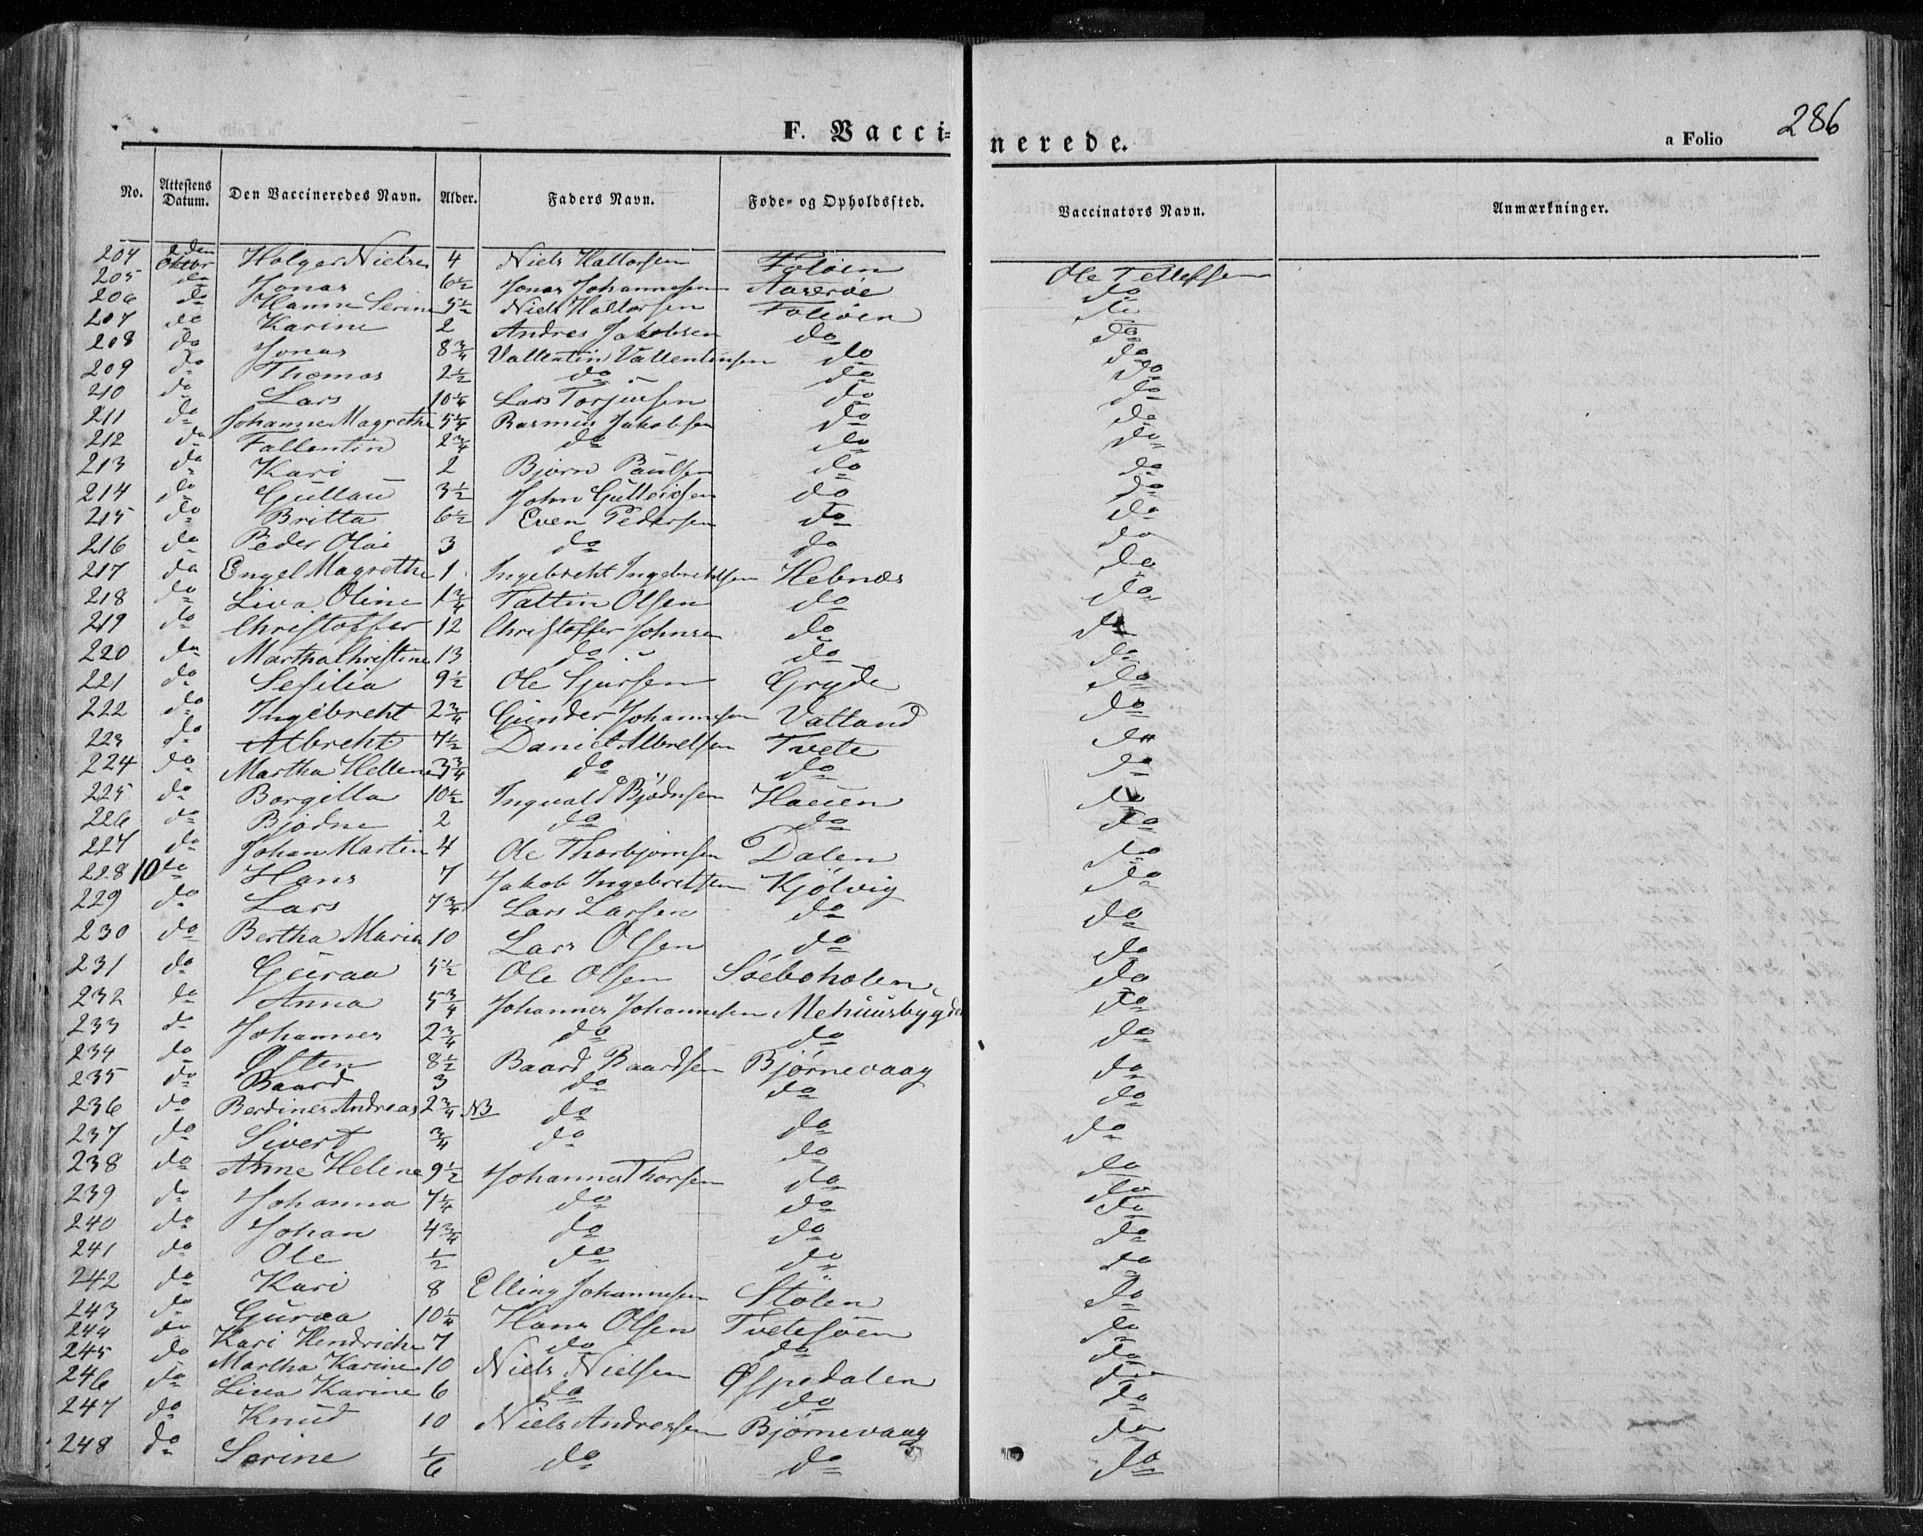 286
F. Vaccinerede.
a Folio
No. Attestens Datum. Den Vaccineredes Navn. Alder. Faders Navn. Føde- og Opholdssted. Vaccinators Navn. Anmærkninger.
204 2den Oktbr Holger Nielsen 4 Niels Foløen Ole Tellefsen
205 do Jonas 6½ Jonas Johannesen do
206 do Hanne Serine 5½ Niels Foløen do
207 do Karine 2 Andres Jakobsen do do
208 do Jonas 8¾ Vallentin Vallentinsen do do
209 do Thomas 2½ do do do
210 do Lars 10¼ Lars Torjusen do do
211 do Johanne Magrethe 5¼ Rasmus Jakobsen do do
212 do Fallentin 2¾ do do do
213 do Kari 2 Bjørn Paulsen do do
214 do 3½ John do do
215 do Britta 6½ Even Pedersen do do
216 do Peder Olai 3 do do do
217 do Engel Magrethe 1 Ingebreht Ingebrehtsen Hebnes do
218 do Liva Oline 1¾ Faltin Olsen do do
219 do Christoffer 12 Christoffer Johnsen do do
220 do Martha Christine 13 do do do
221 do Sesilia 9½ Ole Gryde do
222 do Ingebreht 2¾ Gunder Johannesen Vatland do
223 do Albreht 7½ Daniel Albretsen Tvete do
224 do Martha Hellene 3¾ do do do
225 do Borgilla 10½ Ingvald Bjødnsen Hauen do
226 do Bjødne 2 do do do
227 do Johan Martin 4 Ole Thorbjørnsen Dalen do
228 10 do Hans 7 Jakob Ingebretsen Kjølvig do
229 do Lars 7¾ Lars Larsen do do
230 do Bertha Maria 10 Lars Olsen do do
231 do Guraa 5½ Ole Olsen do
232 do Anna 5¾ Johannes Johannesen Mehuusbygd do
233 do Johannes 2¾ do do do
234 do Østen 8½ Baard Baardsen Bjørnevaag do
235 do Baard 3 do do do
236 do Berdines Andreas 2¾ NB do do do
237 do Sivert ¾ do do do
238 do Anne Helene 9½ Johannes Thorsen do do
239 do Johanna 7¼ do do do
240 do Johan 4¾ do do do
241 do Ole ½ do do do
242 do Kari 8 Elling Johannesen Stølen do
243 do Guraa 10¼ Hans Olsen Tvetesøen do
244 do Kari Hendriche 7 do do do
245 do Martha Karine 10 Niels Nielsen Øspedalen do
246 do Liva Karine 6 do do do
247 do Knud 10 Niels Andressen Bjørnevaag do
248 do Serine 1/6 do do do